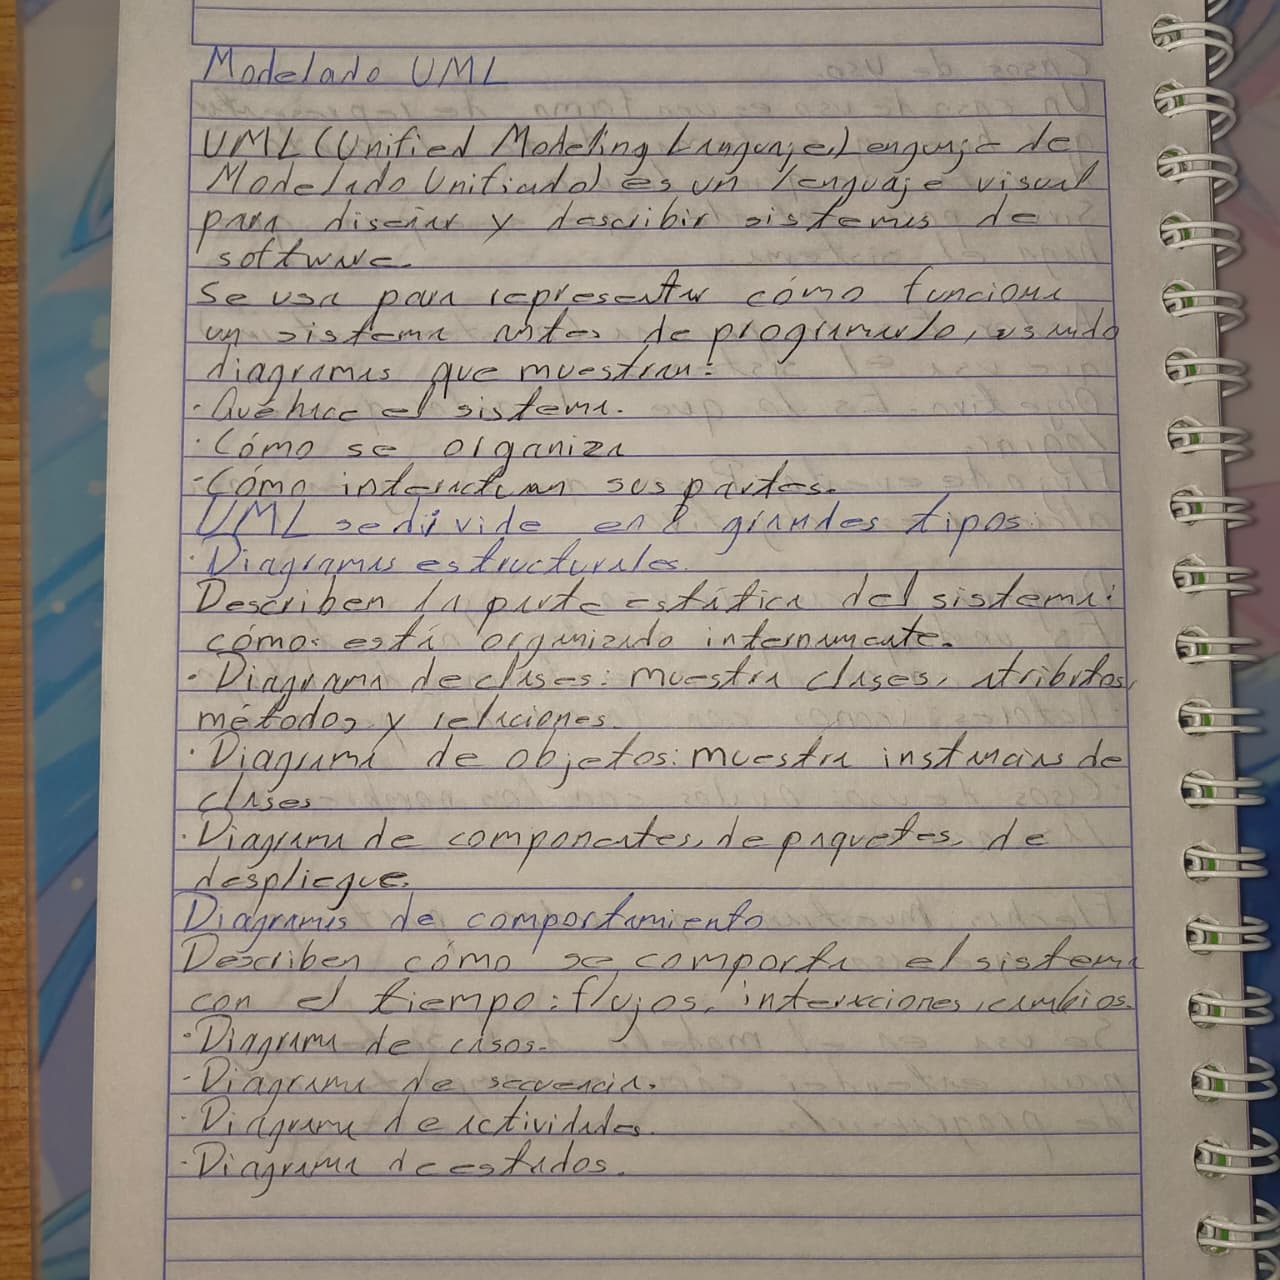 Modelado UML
UML (Unified Modeling Languaje) enguaje de
Modelado Unificado) es un lenguaje visual
para diseñar y describir sistemas de
software.
Se usa para representar cómo funciona
un sistema antes de programarlo, usando
diagramas que muestran:
·Qué hace el sistema.
·Cómo se organiza
·Cómo interactúan sus partes.
UML se divide en 2 grandes tipos:
·Diagramas estructurales.
Describen la parte estática del sistema:
cómo está organizado internamente.
·Diagrama de clases: muestra clases, atributos,
métodos y relaciones.
·Diagrama de objetos: muestra instancias de
clases
·Diagrama de componentes, de paquetes, de
despliegue.
Diagramas de comportamiento
Describen cómo se comporta el sistema
con el tiempo: flujos, interacciones, cambios.
·Diagrama de casos.
·Diagrama de secuencia.
·Diagrama de actividades.
·Diagrama de estados.